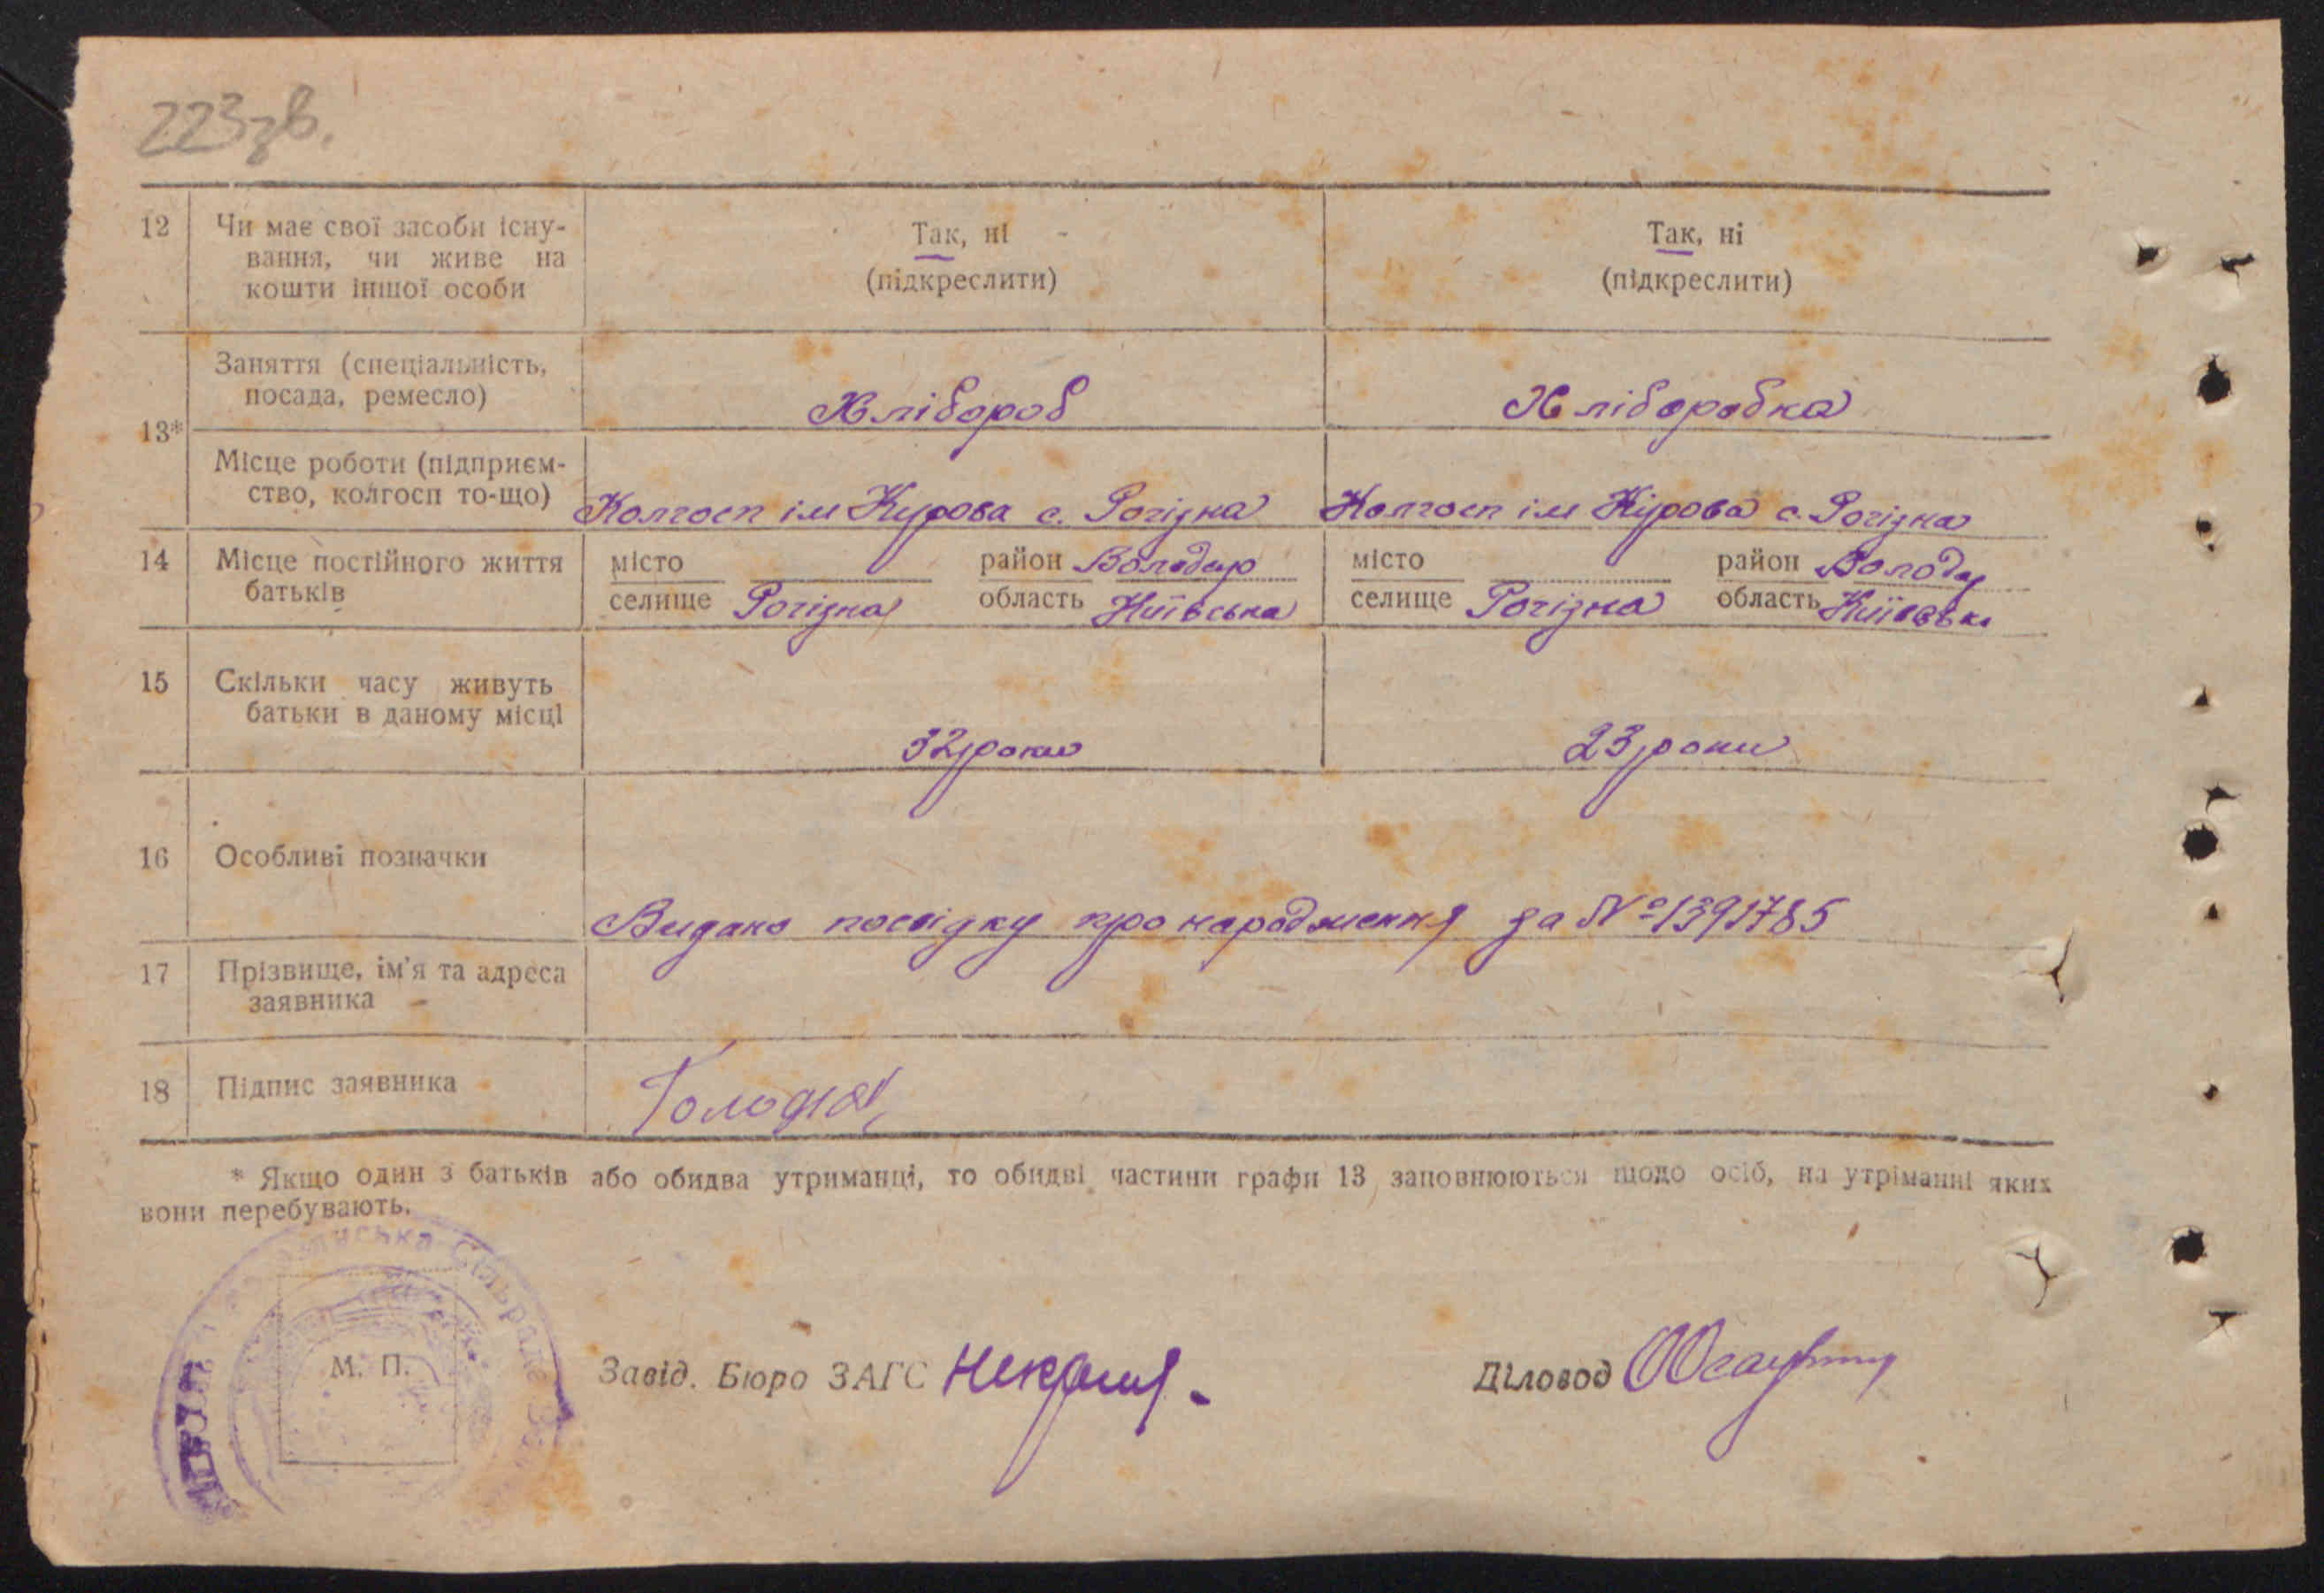 223зв.
12 Чи має свої засоби існу- Так, ні Так, ні
вання, чи живе на (підкреслити) (підкреслити)
кошти іншої особи
Заняття (спеціальність,
посада, ремесло) Хлібороб Хліборобка
13*
Місце роботи (підприєм-
ство, колгосп то-що) Колгосп ім Кірова с. Рогізна Колгосп ім Кірова с. Рогізна
14 Місце постійного життя місто район Володар місто район Володар
батьків селище Рогізна область Київська селище Рогізна область Київськ
15 Скільки часу живуть
батьки в даному місці 32 роки 23 роки
16 Особливі позначки
Видано посвідку про народження за № 1391785
17 Прізвище, ім'я та адреса
заявника
18 Підпис заявника
* Якщо один з батьків або обидва утриманці, то обидві частини графи 13 заповнюються щодо осіб, на утріманні яких
вони перебувають.
Сільрада
М. П.
Завід. Бюро ЗАГС Діловод